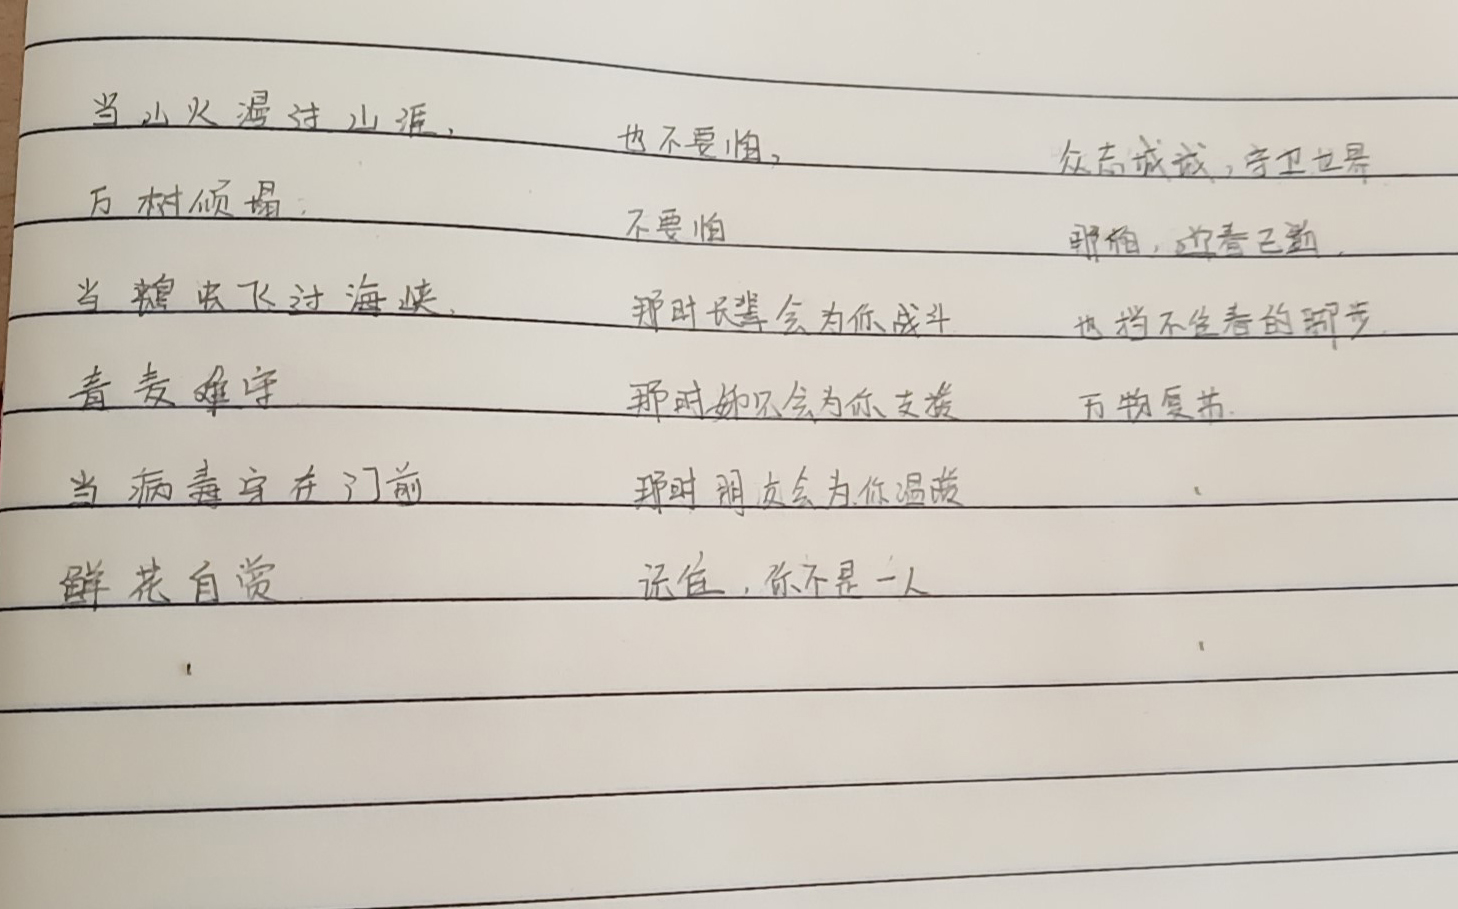 当山火漫过山涯，
万树倾塌.
当蝗虫飞过海峡，
青麦难守
当病毒守在门前
鲜花自赏
也不要怕，
不要怕
那时长辈会为你战斗
那时姊兄会为你支援
那时朋友会为你温暖
记住，你不是一人
众志成诚，守卫世界
那怕，迎春已逝，
也挡不住春的脚步.
万物复苏.